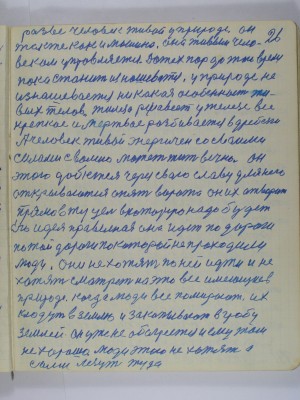 разве человек живой у природе он
также как и машина, она живым чело- 26
веком управляется до тех пор до того время
пока станит изношеваты, у природе не
изнашевается никакая особенност жи-
вых телов, жилез ржавеет у тела все
крепкое и мертвое разбивается в дребезги
А человек живой энергичен со своими
силами своими может жит вечно он
этого добется чериз свою славу для него
открываются опят ворота он их
прямо в ту цел в которую надо будет
то идея правельная она идет по дороги
по той дороги по которой не проходили
люди, они не хотят по ней идти и не
хотят смотрет на это все имеющиеся в
природе. когда люди все помирают их
кладут в землю, и закапывают в гробу
землей он уже не обогреется и ему там
не хорошо люди этого не хотят а
сами лезут туда